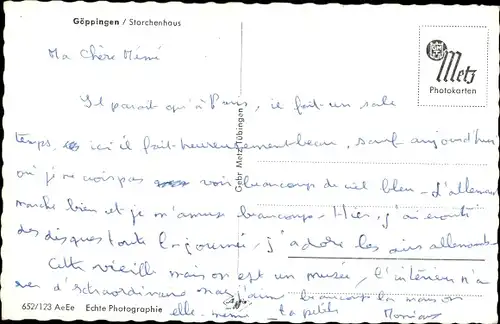 Göppingen / Storchenhaus
Metz
Photokarten
Ma Chère Mémé
Il parait qu'à Paris, il fait un sale
temps, ici il fait heureusement beau, sauf aujourd'hui
où je ne vois pas beaucoup de ciel bleu - L'allemand
marche bien et je m'amuse beaucoup. Hier, j'ai écouté
des disques toute la journée, j'adore les airs allemands
Cette vieille maison est un musée, l'intérieur n'a
rien d'extraordinaire mais j'aime beaucoup la maison
elle-même Ta petite
Gebr. Metz, Tübingen
652/123 AeEe Echte Photographie